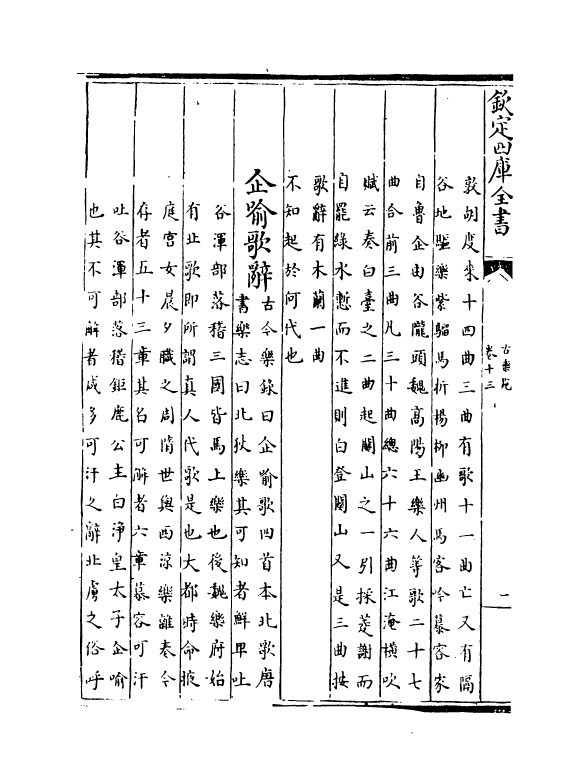 欽定四庫全書
古樂苑
卷十三
一
敦胡度來十四曲三曲有歌十一曲亡又有隔
谷地驅樂紫騮馬折楊柳幽州馬客吟慕容家
自魯企由谷隴頭魏高陽王樂人等歌二十七
曲合前三曲凡三十曲總六十六曲江淹横吹
賦云奏白臺之二曲起關山之一引採菱謝而
自罷緑水慙而不進則白登關山又是三曲按
歌辭有木蘭一曲
不知起於何代也
企喻歌辭
古今樂錄曰企喻歌四首本北歌唐
書樂志曰北狄樂其可知者鮮卑吐
谷渾部落稽三國皆馬上樂也後魏樂府始
有北歌即所謂真人代歌是也大都時命掖
庭宫女晨夕職之周隋世與西涼樂雜奏今
存者五十三章其名可解者六章慕容可汗
吐谷渾部落稽鉅鹿公主白淨皇太子企喻
也其不可解者咸多可汗之辭北虜之俗呼